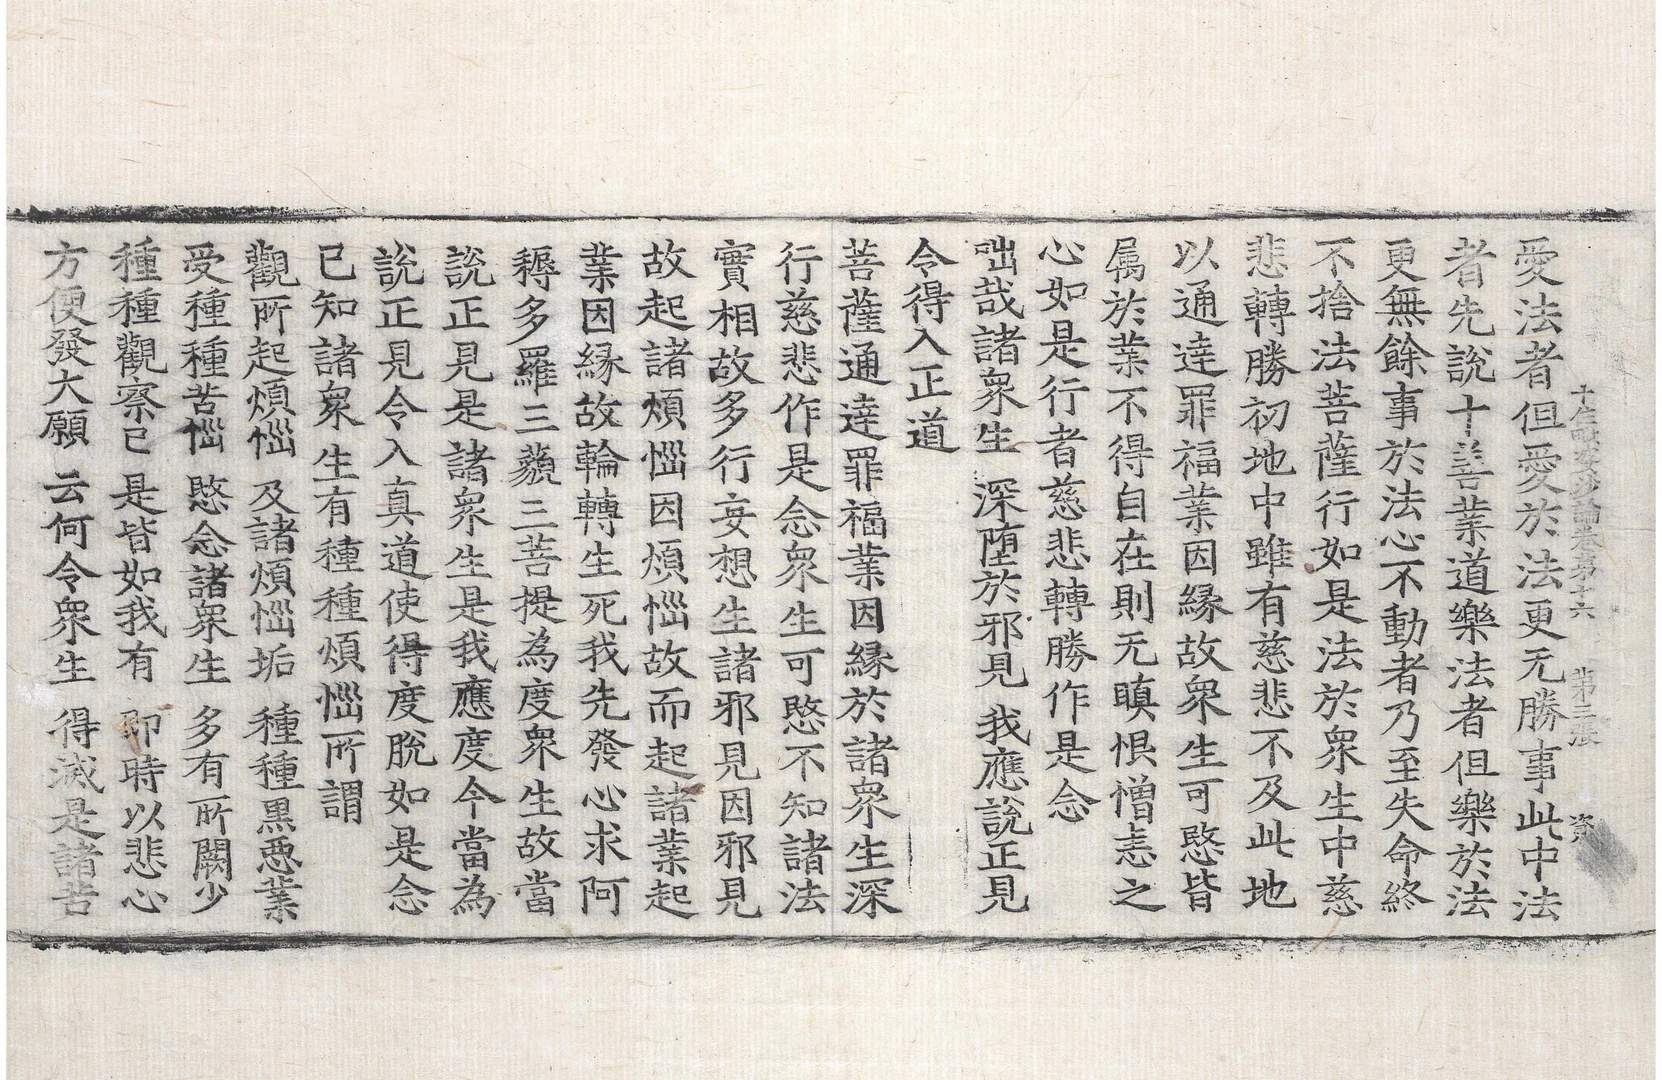 十住毗婆沙論卷第十六　第三張　資
愛法者但愛於法更无勝事此中法
者先說十善業道樂法者但樂於法
更無餘事於法心不動者乃至失命終
不捨法菩薩行如是法於衆生中慈
悲轉勝初地中雖有慈悲不及此地
以通達罪福業因緣故衆生可愍皆
屬於業不得自在則无瞋恨憎恚之
心如是行者慈悲轉勝作是念
咄哉諸衆生　深墮於邪見　我應說正見
令得入正道
菩薩通達罪福業因緣於諸衆生深
行慈悲作是念衆生可愍不知諸法
實相故多行妄想生諸邪見因邪見
故起諸煩惱因煩惱故而起諸業起
業因緣故輪轉生死我先發心求阿
耨多羅三藐三菩提為度衆生故當
說正見是諸衆生是我應度今當為
說正見令入真道使得度脫如是念
已知諸衆生有種種煩惱所謂
觀所起煩惱　及諸煩惱垢　種種黑惡業
受種種苦惱　愍念諸衆生　多有所闕少
種種觀察已　是皆如我有　即時以悲心
方便發大願　云何令衆生　得滅是諸苦